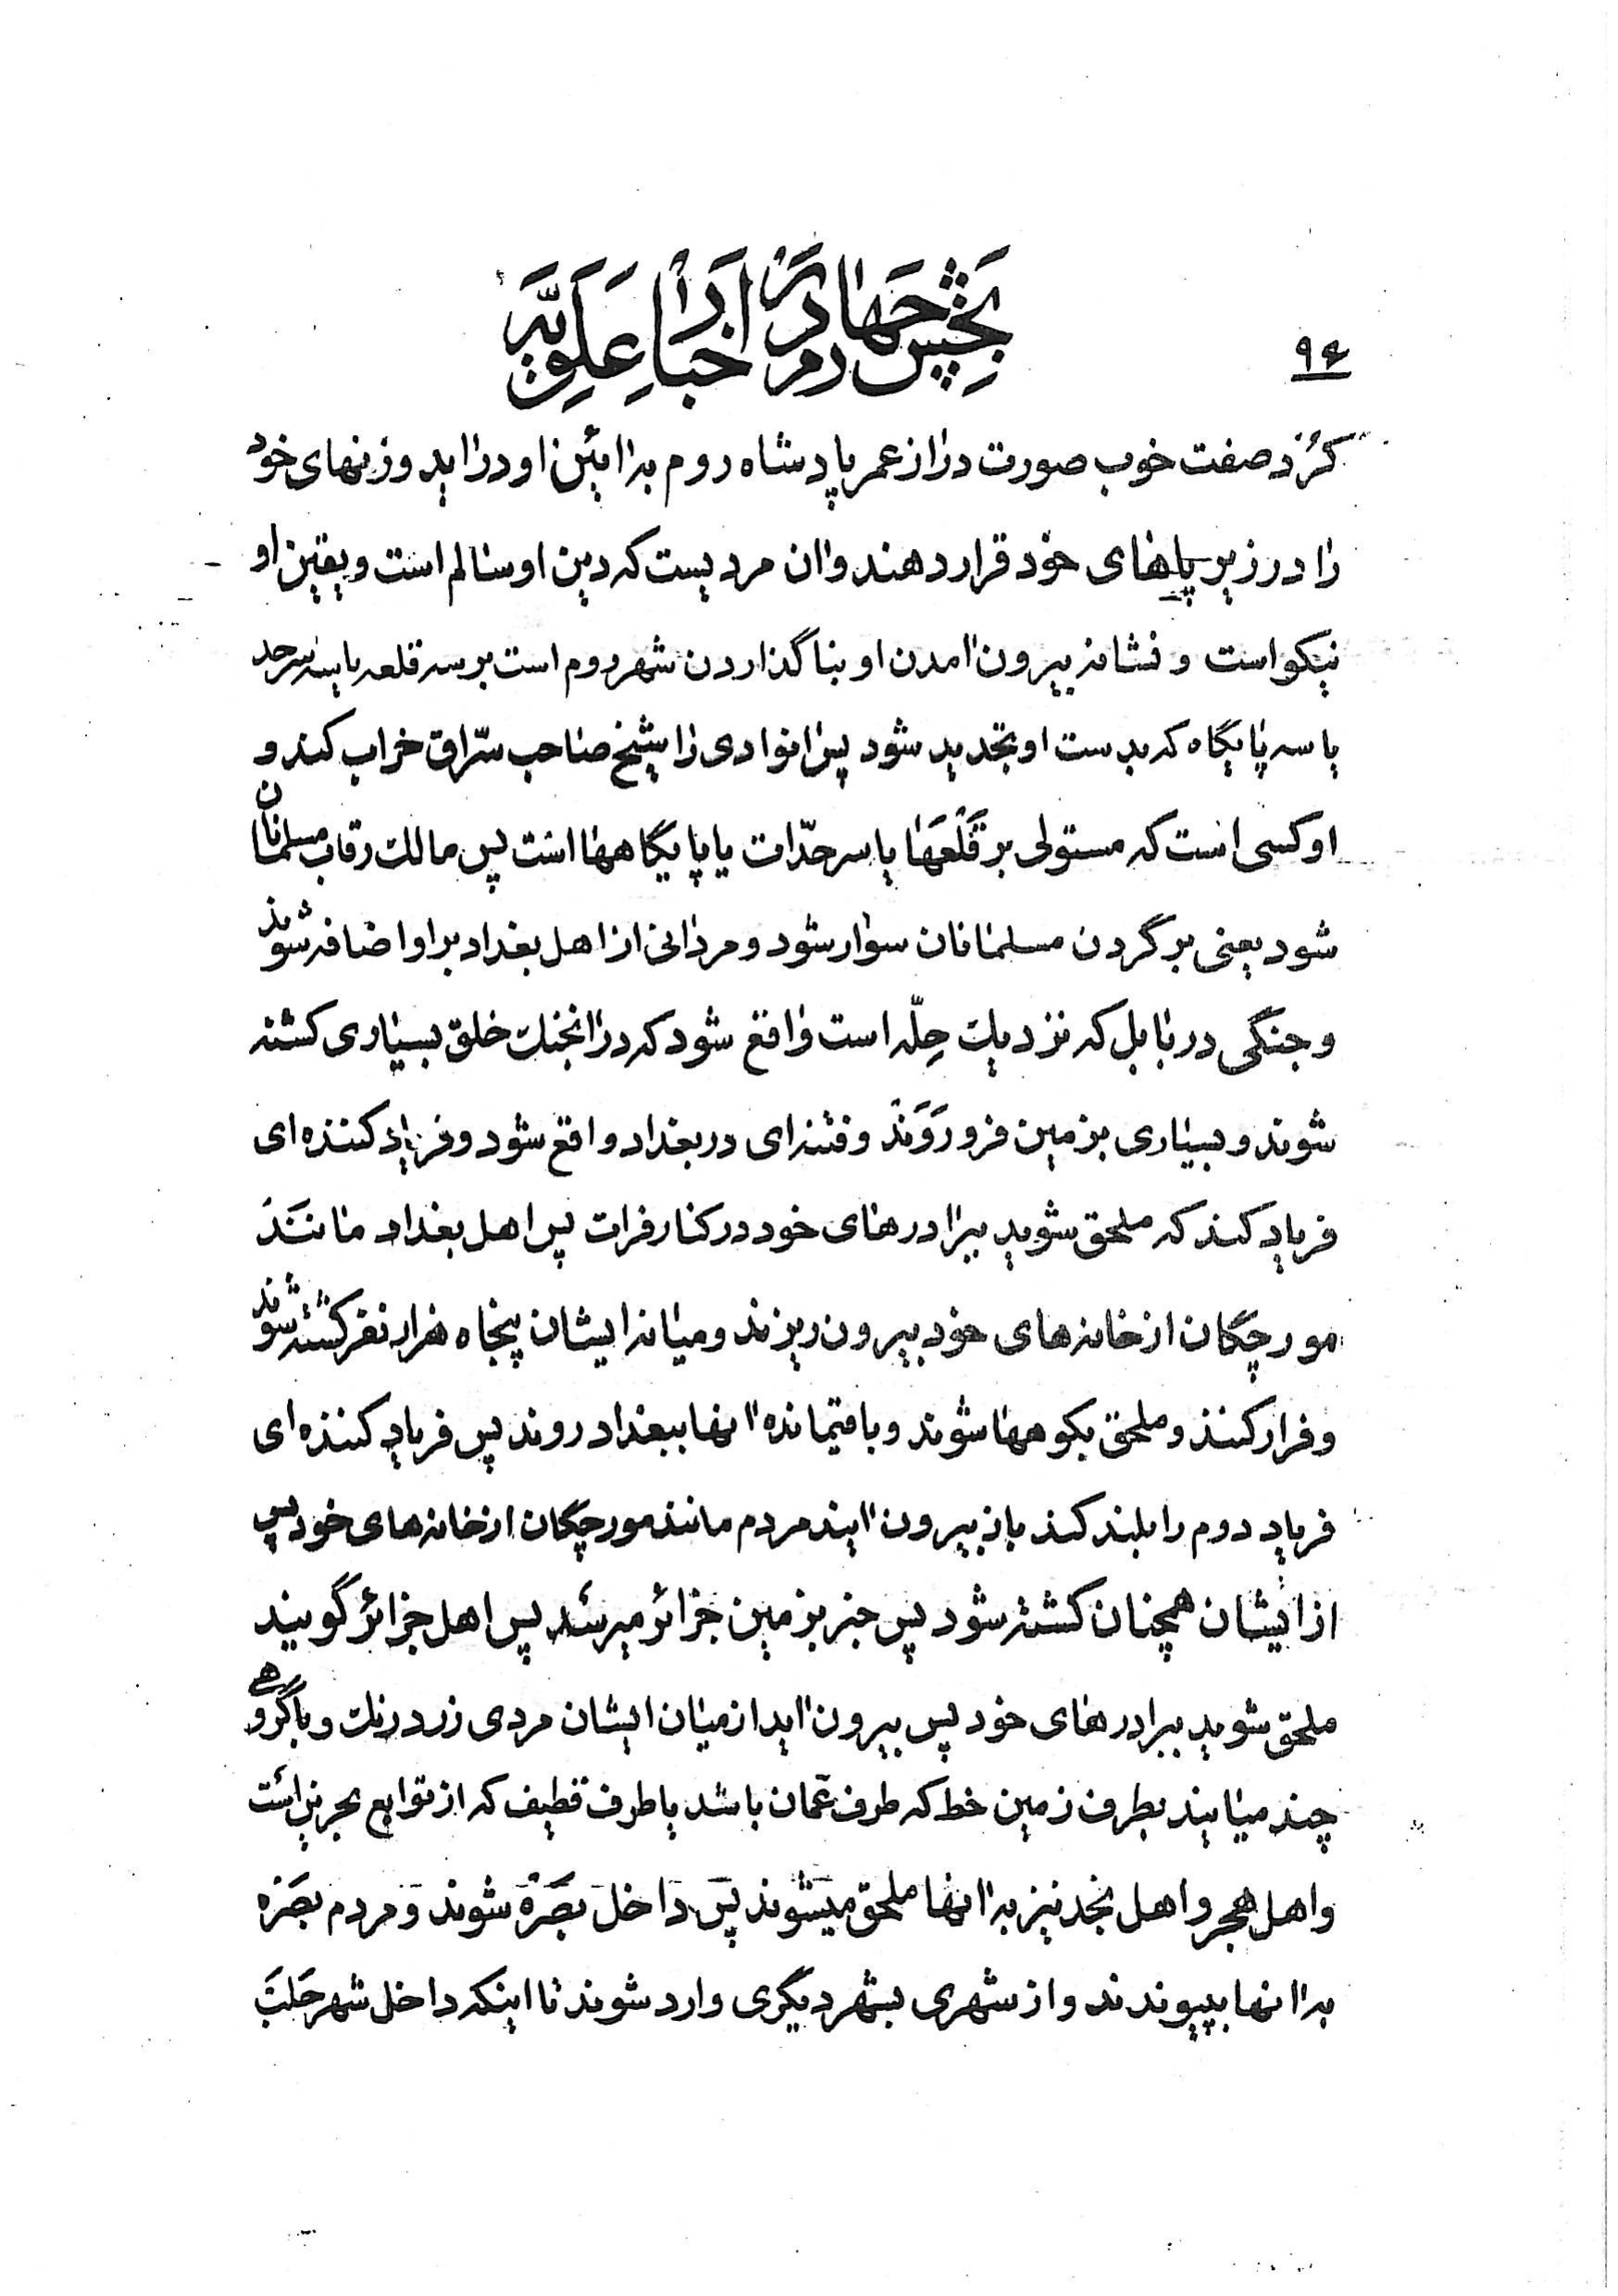 ۹۴
بخش چهارم در اخبار علویه
کرد صفت خوب صورت دراز عمر پادشاه روم به ائین او درآید و زنهای خود
را در زیر پاهای خود قرار دهند و ان مردیست که دین او سالم است و یقین او
نیکو است و نشانه بیرون امدن او بنا گذاردن شهر روم است بر سه قلعه یا سه سرحد
یا سه پایگاه که بدست او تجدید شود پس انوادی را شیخ صاحب سرّاق خراب کند و
او کسی است که مستولی بر قَلْعَها یا سرحدّات یا پایگاهها است پس مالک رقاب مسلمانان
شود یعنی بر گردن مسلمانان سوار شود و مردانی از اهل بغداد بر او اضافه شوند
و جنگی در بابل که نزدیک حِلّه است واقع شود که در انجنک خلق بسیاری کشته
شوند و بسیاری بزمین فرو رَوَند و فتنه ای در بغداد واقع شود و فریاد کننده ای
فریاد کند که ملحق شوید ببرادرهای خود در کنار فرات پس اهل بغداد مانند
مورچگان از خانه های خود بیرون ریزند و میانه ایشان پنجاه هزار نفر کشته شوند
و فرار کنند و ملحق بکوهها شوند و باقیمانده انها ببغداد روند پس فریاد کننده ای
فریاد دوم را بلند کند باز بیرون ایند مردم مانند مورچگان از خانه های خود پس
از ایشان همچنان کشته شود پس خبر بزمین جزائر میرسد پس اهل جزائر گویند
ملحق شوید ببرادرهای خود پس بیرون اید از میان ایشان مردی زرد رنک و با گروهی
چند میایند بطرف زمین خط که طرف عمان باشد یا طرف قطیف که از توابع بحرین است
و اهل هجر و اهل نجد نیز به انها ملحق میشوند پس داخل بَصْرَه شوند و مردم بصره
به انها بپیوندند و از شهری بشهر دیگری وارد شوند تا اینکه داخل شهر حَلَبْ